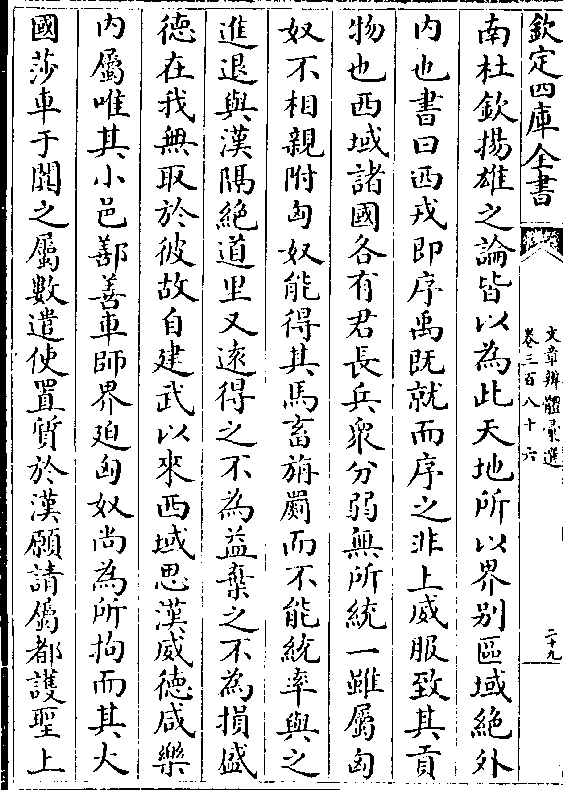 欽定四庫全書
文章辨體彙選
卷三百八十六
二十九
南杜欽揚雄之論皆以為此天地所以界别區域絶外
内也書曰西戎即序禹既就而序之非上威服致其貢
物也西域諸國各有君長兵衆分弱無所統一雖屬匈
奴不相親附匈奴能得其馬畜旃罽而不能統率與之
進退與漢隔絶道里又逺得之不為益棄之不為損盛
德在我無取於彼故自建武以來西域思漢威德咸樂
内屬唯其小邑鄯善車師界廹匈奴尚為所拘而其大
國莎車于闐之屬數遣使置質於漢願請屬都護聖上